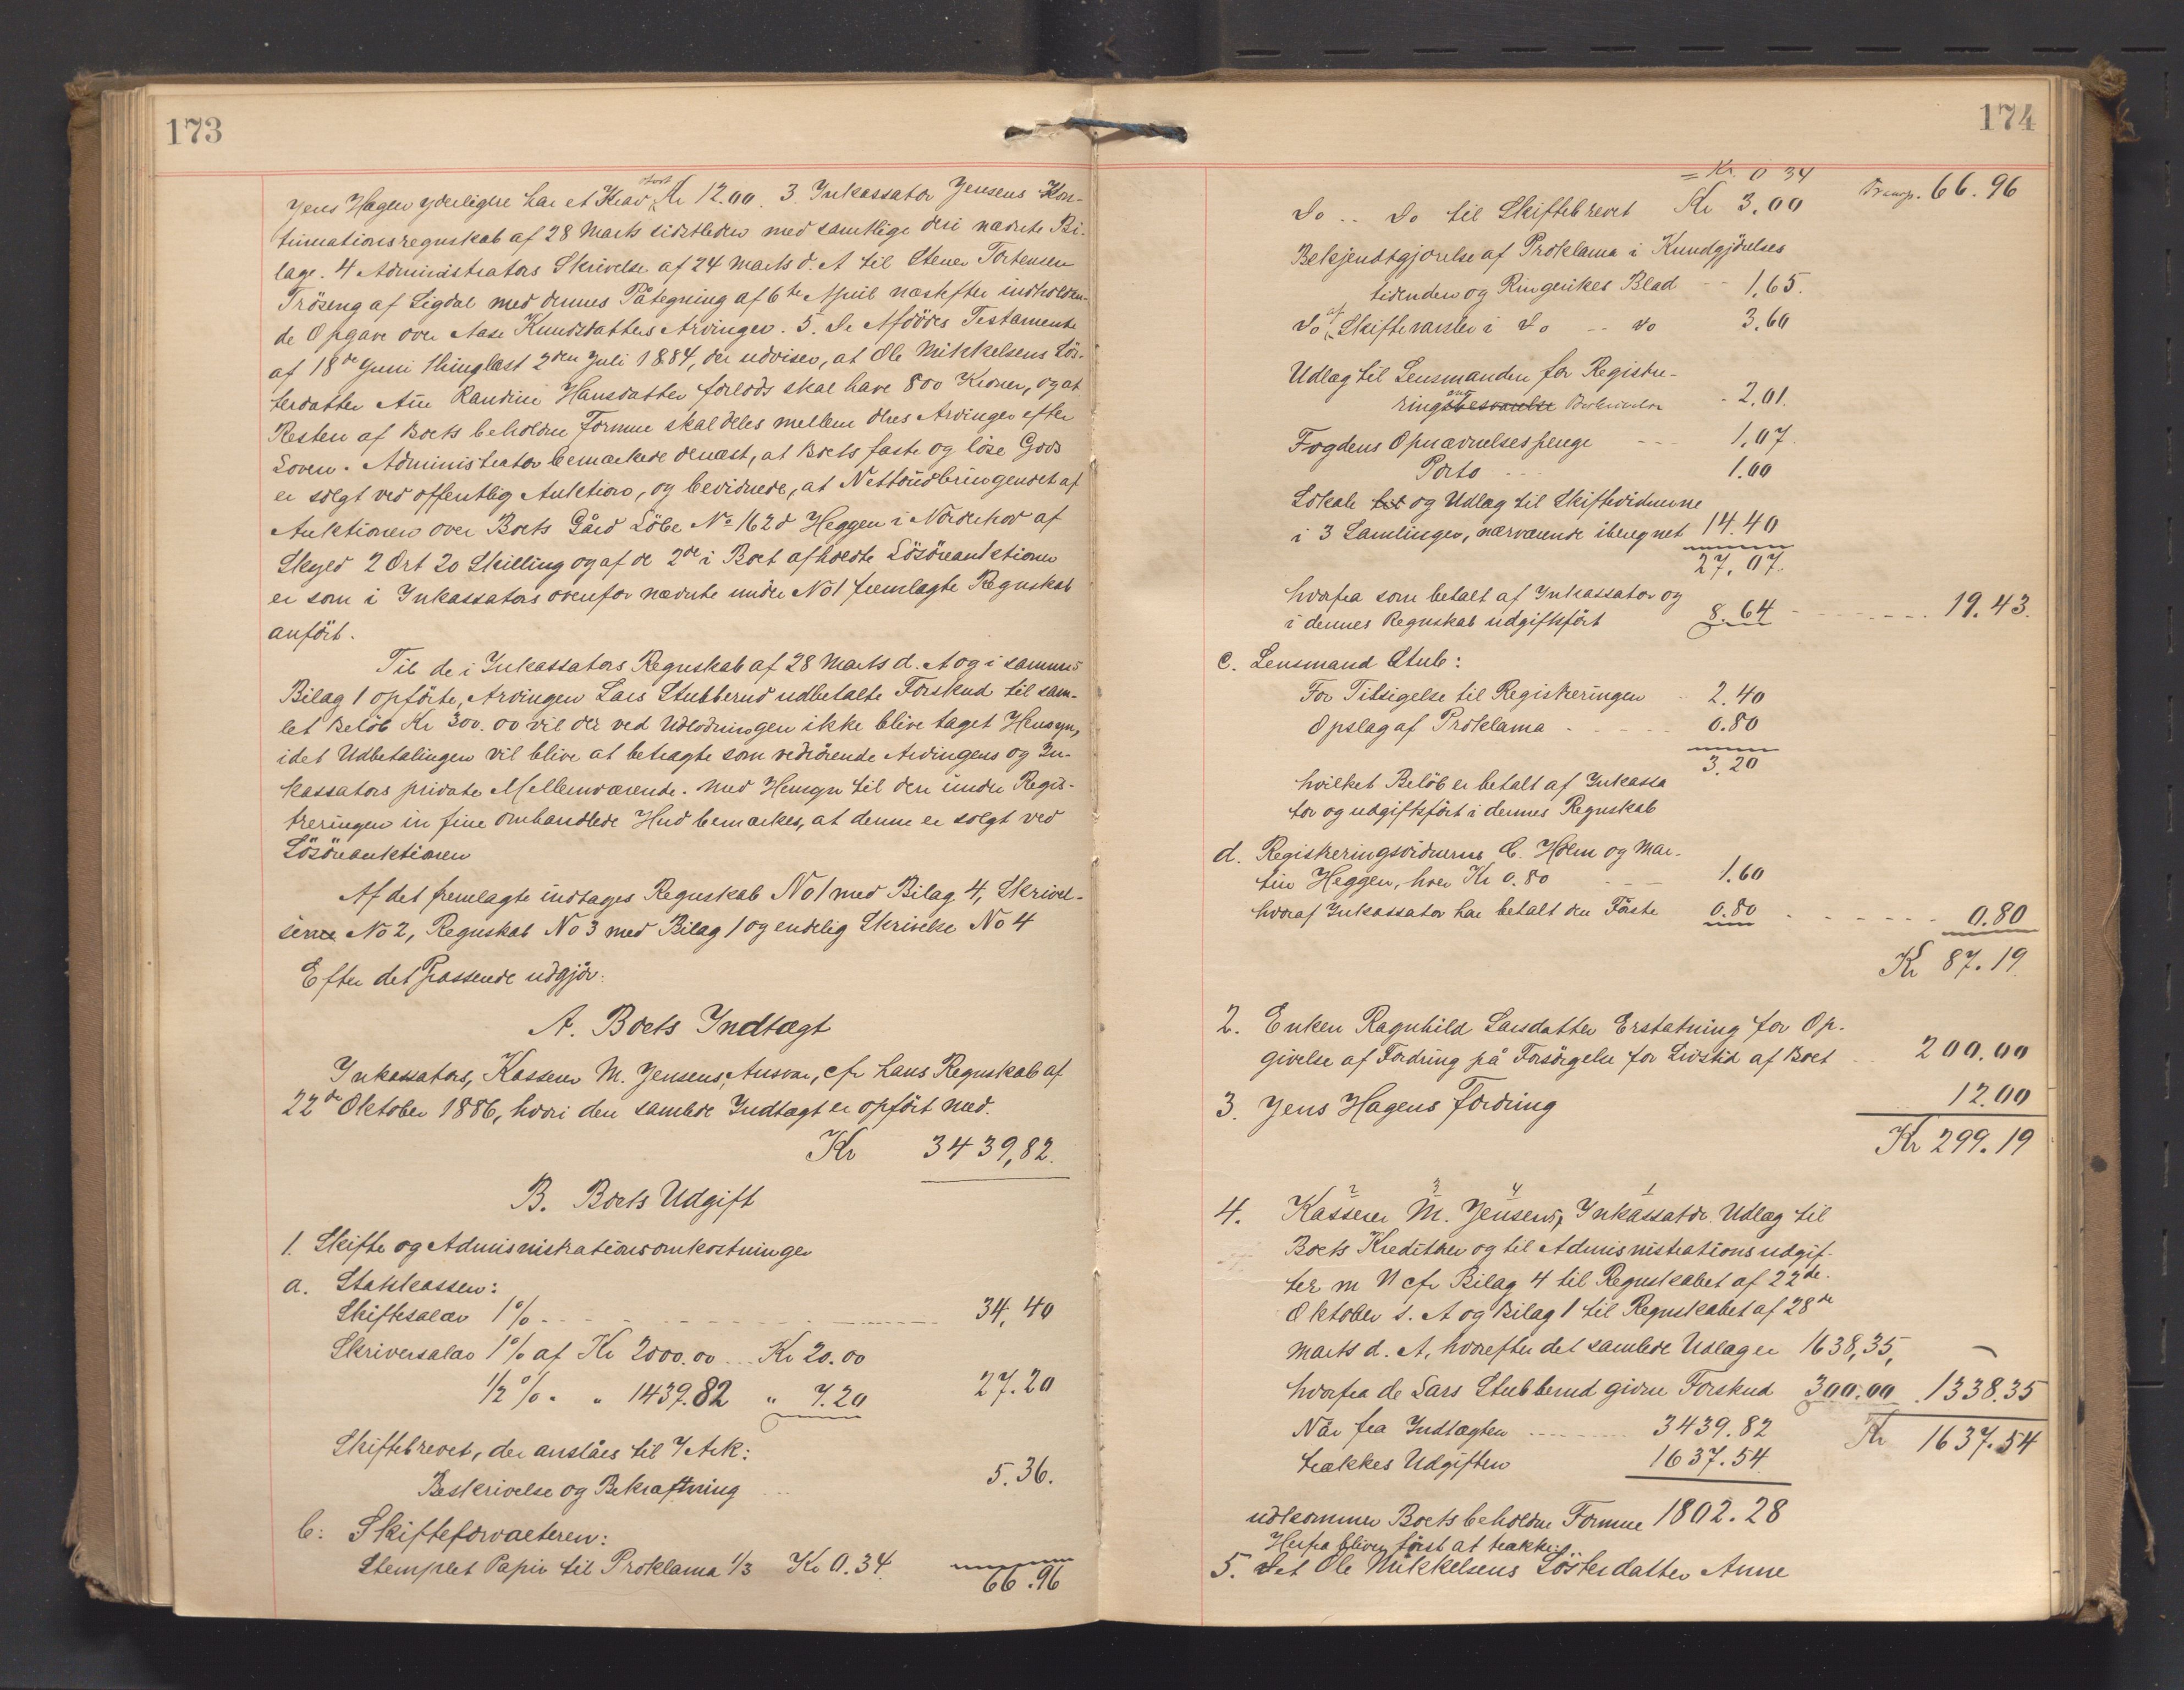 173
Jens Hagen yderligere har et Krav stort Kr 12.00. 3. Inkassator Jensens Kon-
tinuationsregnskab af 28 Marts sidstleden med samtlige deri nævnte Bi-
lage. 4 Administrators Skrivelse af 24 Marts d. A til Stener Torstensen
Tröseng af Sigdal med dennes Påtegning af 6te April næstefter indholden-
de Opgave over Aase Knudsdatters Arvinger. 5. De Afdödes Testamente
af 18de Juni thinglæst 2den Juli 1884, der udviser, at Ole Mikkelsens Sös-
terdatter Ane Randine Hansdatter forlods skal have 800 Kroner, og at
Resten af Boets beholdne Formue skal deles mellem deres Arvinger efter
Loven. Administrator bemærkede dernæst, at Boets faste og löse Gods
er solgt ved offentlig Auktion, og bevidnede, at Nettoudbringendet af
Auktionen over Boets Gård Löbe No 162d Heggen i Norderhov af
Skyld 2 Ort 20 Skilling og af de 2de i Boet afholdte Lösöreauktioner
er som i Inkassators ovenfor nævnte under No1 fremlagte Regnskab
anfört.
Til de i Inkassators Regnskab af 28 Marts d. A og i sammes
Bilag 1 opförte, Arvingen Lars Stubberud udbetalte Forskud til sam-
let Belöb Kr 300.00 vil der ved Udlodningen ikke blive taget Hensyn,
idet Udbetalingen vil blive at betragte som vedrörende Arvingens og In-
kassators private Mellemværende. Med Hensyn til den under Regis-
treringen in fine omhandlede Hud bemærkes, at denne er solgt ved
Lösöreauktionen
Af det fremlagte indtages Regnskab No 1 med Bilag 4, Skrivel-
serne No 2, Regnskab No 3 med Bilag 1 og endelig Skrivelse No 4
Efter det Passerede udgjör:
A. Boets Indtægt
Inkassators, Kasserer M. Jensens, Ansvar, cfr hans Regnskab af
22de Oktober 1886, hvori den samlede Indtægt er opfört med.
Kr 3439,82.
B. Boets Udgift
1. Skifte og Admisnistrationsomkostninger
a. Statskassen:
Skiftesalær 1% 34,40
Skriversalær 1% af Kr 2000.00 Kr 20.00
1/2 % " " 1439.82 " 7.20 27.20
Skiftebrevet, der anslåes til 7 Ark:
Beskrivelse og Bekræftning 5.36.
b: Skifteforvalteren:
Stemplet Papir til Proklama 1/3 Kr 0.34
66.96
174
= Kr. 0 34 Transp. 66.96
Do .. Do til Skiftebrevet Kr 3.00
Bekjendtgjörelse af Proklama i Kundgjörelses
tidenden og Ringerikes Blad 1.65.
Do af Skiftevarsler i Do .. do 3.60
Udlæg til Lensmanden for Registre-
ring 2.01.
Fogdens Opnævnelsespenge 1.07.
Porto 1.00
Lokale til og Udlæg til Skiftevidnerne
i 3 Samlinger, nærværende iberegnet 14.40
27.07.
hvorfra som betalt af Inkassator og
i dennes Regnskab udgiftsfört 8.64 19.43.
c. Lensmand Stub:
For Tilsigelse til Registreringen 2.40
Opslag af Proklama 0.80
3.20
hvilket Belöb er betalt af Inkassa
tor og udgiftsfört i dennes Regnskab
d. Registreringsvidnerne C. Holm og Mar-
tin Heggen, hver Kr 0.80 1.60
hvoraf Inkassator har betalt den Förste 0.80 0.80
Kr 87.19
2. Enken Ragnhild Larsdatter Erstatning for Op-
givelse af Fordring på Forsörgelse for Livstid af Boet 200.00
3. Jens Hagens Fordring 12.00
Kr 299.19
4. Kasserer M. Jensens, Inkassator Udlæg til
Boets Kreditorer og til Admisnistrationsudgif-
ter m V cfr Bilag 4 til Regnskabet af 22de
Oktober s. A og Bilag 1 til Regnskabet af 28de
Marts d. A, hvorefter det samlede Udlæg er 1638,35,
hvorfra de Lars Stubberud givne Forskud 300.00 1338.35
Når fra Indtægten 3439.82 Kr 1637.54
trækkes Udgiften 1637.54
udkommer Boets beholdne Formue 1802.28
Herfra bliver först at trække:
5. Det Ole Mikkelsens Sösterdatter Anne